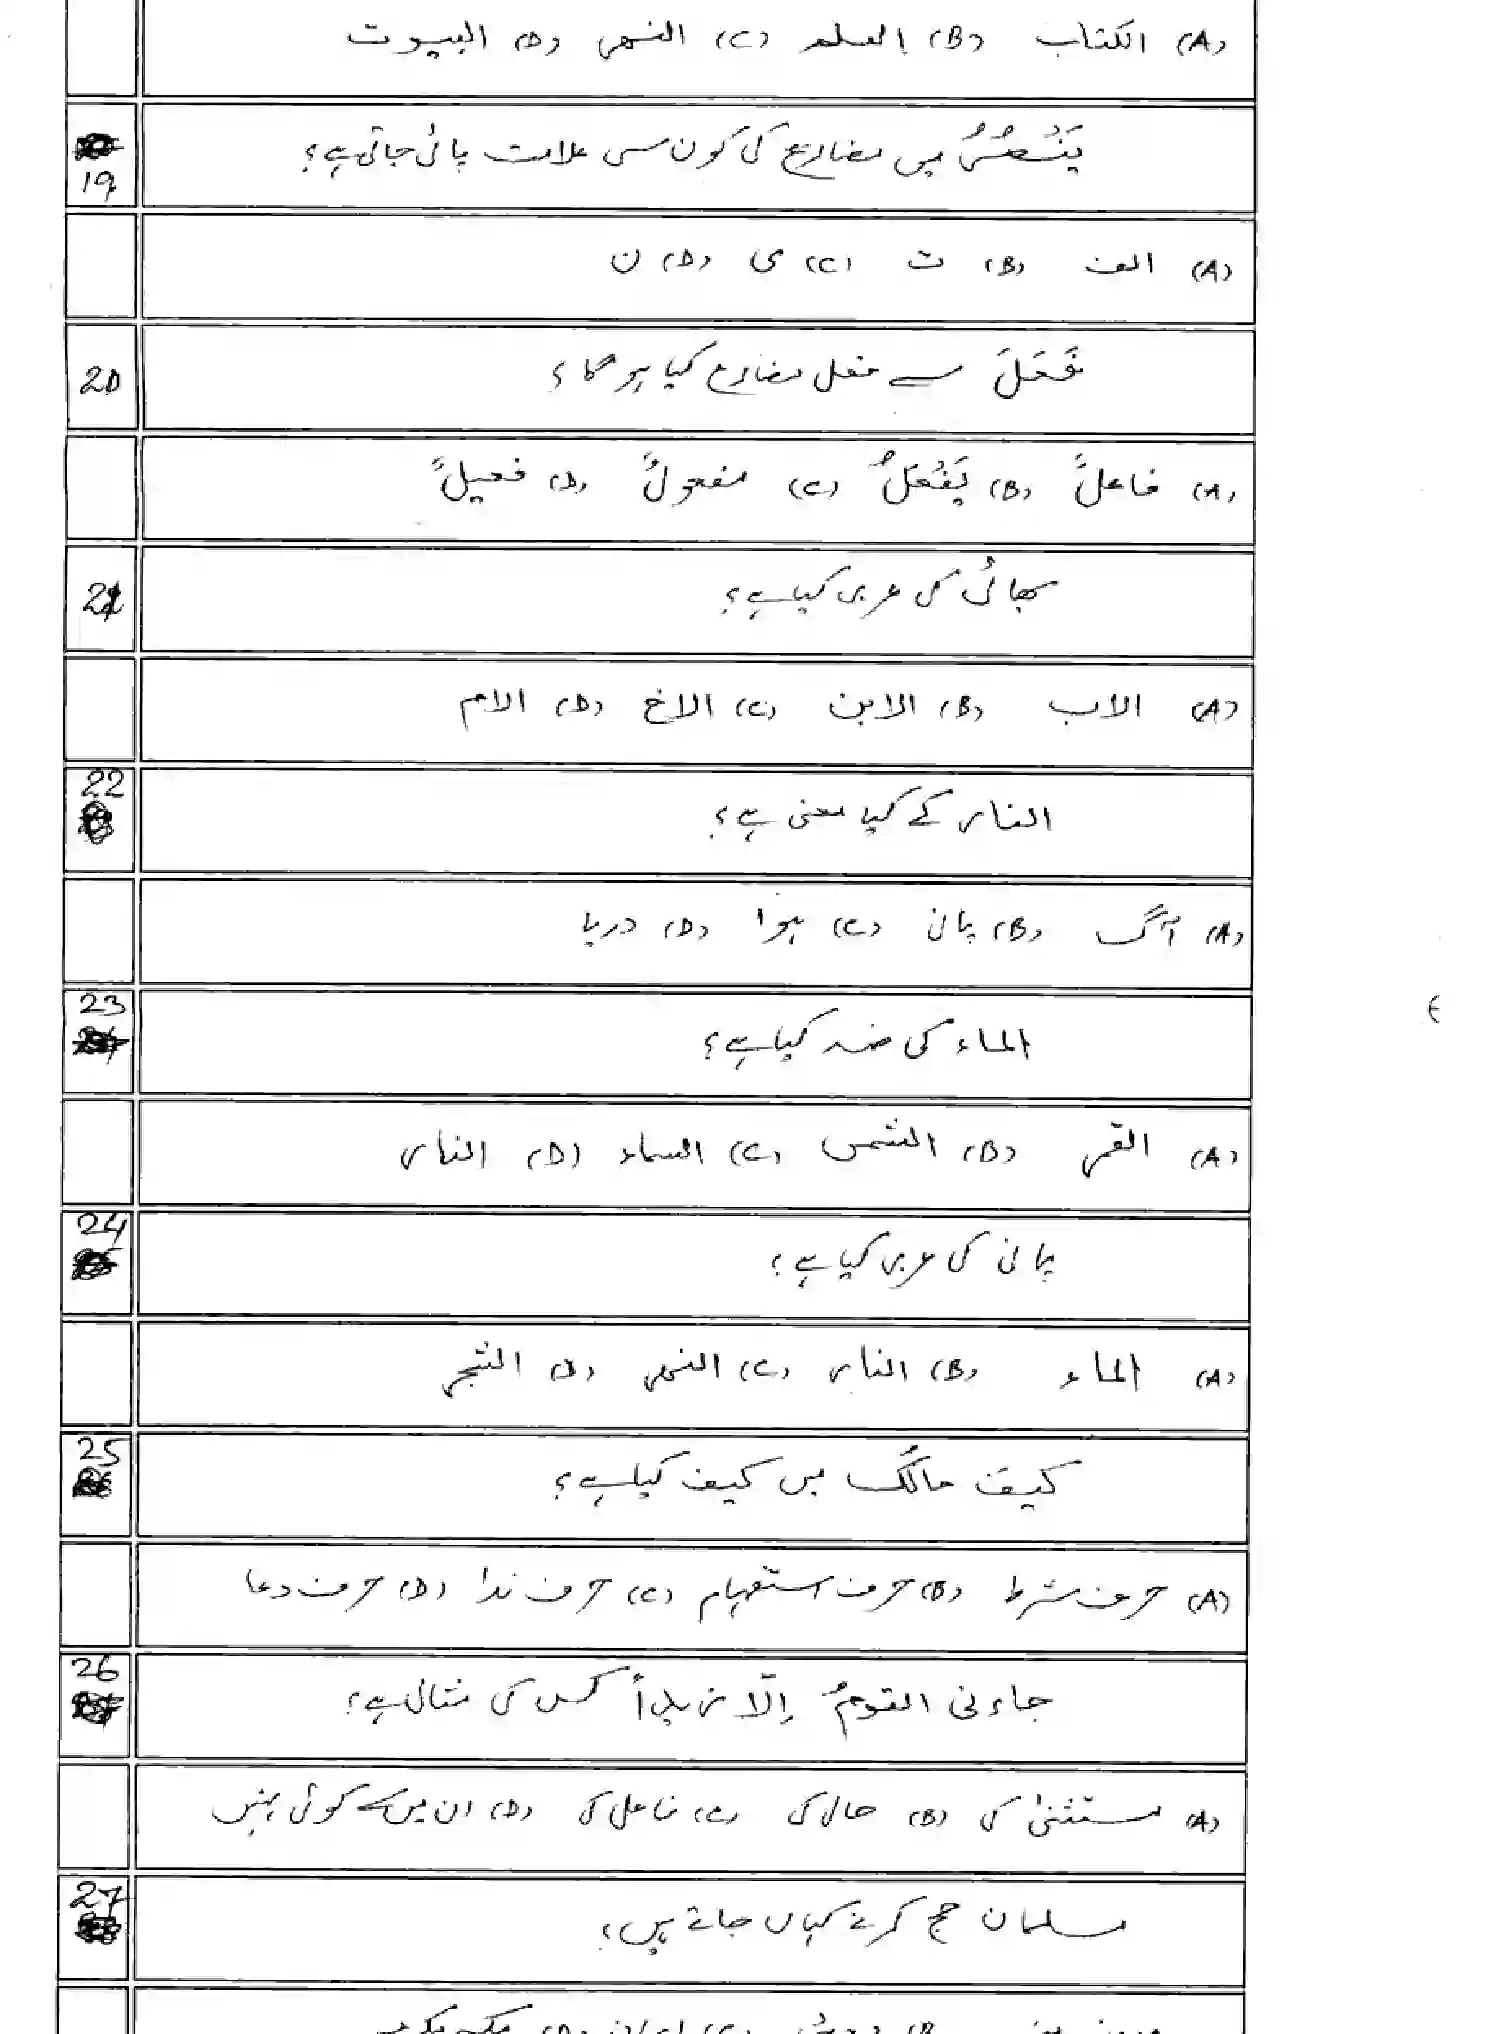 (A) الکتاب (B) العلم (C) النهر (D) البیوت
19 یَنْصُرُ میں مضارع کی کون سی علامت پائی جاتی ہے؟
(A) الف (B) ت (C) ی (D) ن
20 فَعَلَ سے فعل مضارع کیا ہو گا؟
(A) فاعلً (B) یَفْعَلُ (C) مفعولً (D) فعیلً
21 بھائی کی عربی کیا ہے؟
(A) الاب (B) الابن (C) الاخ (D) الام
22 النار کے کیا معنی ہے؟
(A) آگ (B) پانی (C) ہوا (D) دریا
23 الماء کی ضد کیا ہے؟
(A) القمر (B) الشمس (C) السماء (D) النار
24 پانی کی عربی کیا ہے؟
(A) الماء (B) النار (C) النهر (D) الشجر
25 کیفَ حالُکَ میں کیف کیا ہے؟
(A) حرف شرط (B) حرف استفہام (C) حرف ندا (D) حرف دعا
26 جاءنی القومُ اِلّا زیداً کس کی مثال ہے؟
(A) مستثنیٰ کی (B) حال کی (C) فاعل کی (D) ان میں سے کوئی نہیں
27 مسلمان حج کرنے کہاں جاتے ہیں؟